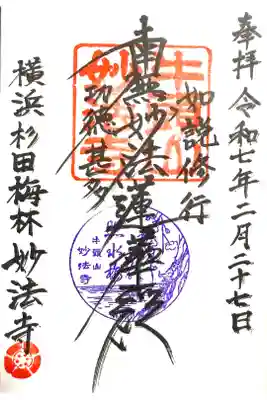 奉拝 令和七年二月二十七日
如説修行
南無妙法蓮華経
功徳甚多
牛頭山
妙法寺
横浜杉田梅林 妙法寺